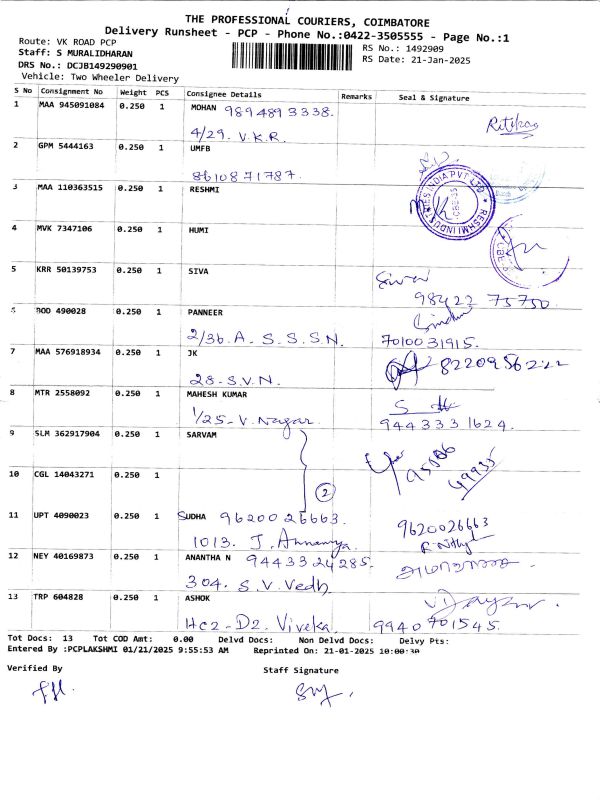 THE PROFESSIONAL COURIERS, COIMBATORE
Delivery Runsheet - PCP - Phone No.:0422-3505555 - Page No.:1
Route: VK ROAD PCP
RS No.: 1492909
Staff: S MURALIDHARAN
RS Date: 21-Jan-2025
DRS No.: DCJB149290901
Vehicle: Two Wheeler Delivery
S No Consignment No Weight PCS Consignee Details Remarks Seal & Signature
1 MAA 945091084 0.250 1 MOHAN 9894893338.
4/29. V.K.R.
2 GPM 5444163 0.250 1 UMFB
8610871787.
3 MAA 110363515 0.250 1 RESHMI
RESHMI INDUSTRIES INDIA PVT LTD
4 MVK 7347106 0.250 1 HUMI
5 KRR 50139753 0.250 1 SIVA
98422 75750.
BOD 490028 0.250 1 PANNEER
2/3b.A. S.S.S.N. 7010031915.
7 MAA 576918934 0.250 1 JK
28-S.V.N.
8 MTR 2558092 0.250 1 MAHESH KUMAR
1/25-V.Nagar. 9443331624.
9 SLM 362917904 0.250 1 SARVAM
10 CGL 14043271 0.250 1
2
11 UPT 4090023 0.250 1 SUDHA 9620026663. 9620026663
1013. J.
12 NEY 40169873 0.250 1 ANANTHA N 9443324285.
304. S.V.Vedh
13 TRP 604828 0.250 1 ASHOK
Hc2-D2. Viveka. 9940701545.
Tot Docs: 13 Tot COD Amt: 0.00 Delvd Docs: Non Delvd Docs: Delvy Pts:
Entered By :PCPLAKSHMI 01/21/2025 9:55:53 AM Reprinted On: 21-01-2025 10:00:30
Verified By Staff Signature